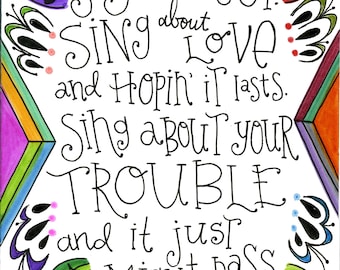 SiNG about LOVE
and HOPiN' iT lasts.
Sing ABOUT YOUR
TROUBLE
and it just
MiGHT PASS